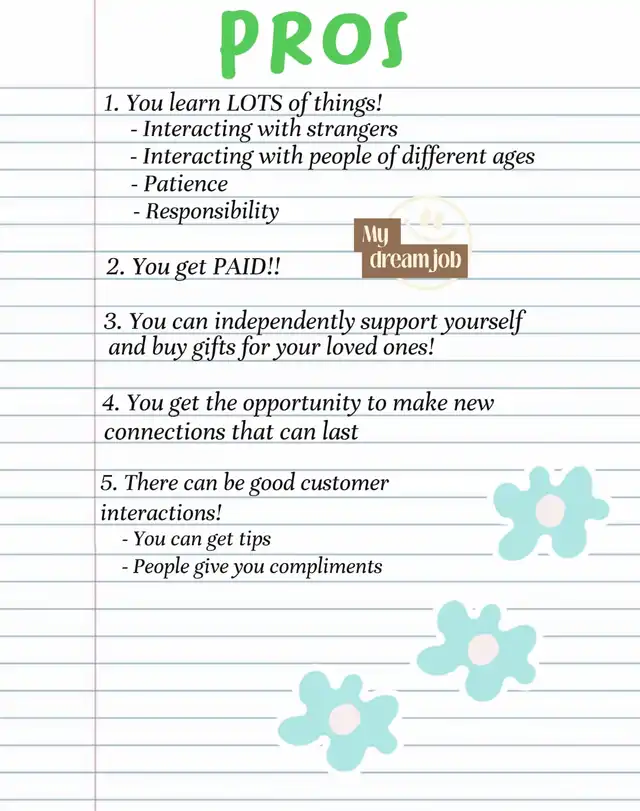 PROS
1. You learn LOTS of things!
- Interacting with strangers
- Interacting with people of different ages
- Patience
- Responsibility
My
dream job
2. You get PAID!!
3. You can independently support yourself
and buy gifts for your loved ones!
4. You get the opportunity to make new
connections that can last
5. There can be good customer
interactions!
- You can get tips
- People give you compliments